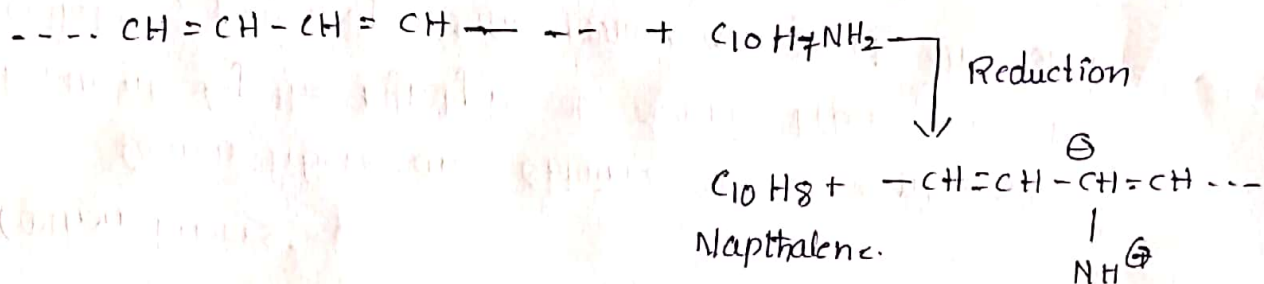 ---- CH = CH - CH = CH — --- + C10H7NH2
Reduction
⊖
C10H8 + - CH = CH - CH = CH ---
Napthalene.
NH ⊕